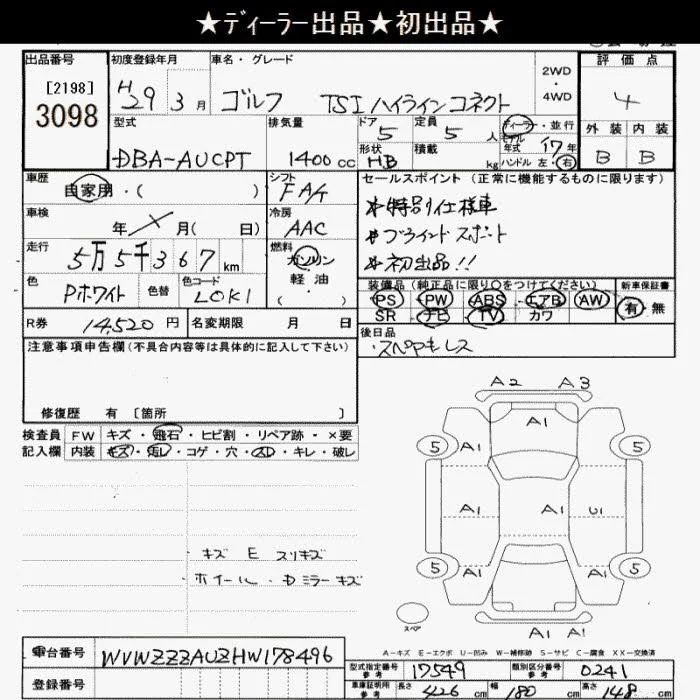 ★ディーラー出品★初出品★
出品番号
[2198]
3098
初度登録年月
H29 3月
車名・グレード
ゴルフ TSI ハイライン コネクト
2WD
・
4WD
評価点
4
外装 内装
B B
型式
DBA-AUCPT
排気量
1400cc
ドア
5
形状
HB
定員
5人
積載
kg
ディーラー・並行
モデル年式 17年
ハンドル 左・右
車歴
自家用・( )
シフト
FA/4
セールスポイント(正常に機能するものに限ります)
*特別仕様車
*ブラインドスポット
*初出品!!
車検
年 月( 日)
冷房
AAC
走行
5万5千367km
燃料
ガソリン
軽油
( )
色
Pホワイト
色替
色コード
LOK1
装備品(純正品に限り○をつけてください)
PS PW ABS エアB AW
SR ナビ TV カワ
新車保証書
有・無
R券
14,520円
名変期限 月 日
後日品
・スペアキーレス
注意事項申告欄(不具合内容等は具体的に記入して下さい)
修復歴 有〔箇所 〕
検査員 FW キズ・飛石・ヒビ割・リペア跡・×要
記入欄 内装 キズ・汚レ・コゲ・穴・スレ・キレ・破レ
・キズ E スリキズ
・ホイール・Dミラーキズ
A2 A3
A1
5 A1 5
A1 A1 U1
5 A1 A1 5
スペア
A1 A1
A-キズ E-エクボ U-凹み W-補修跡 S-サビ C-腐食 XX-交換済
車台番号
WVWZZZAUZHW178496
登録番号
型式指定番号
参考
17549
類別区分番号
参考
0241
車庫証明用
参考
長さ 426cm 幅 180cm 高さ 148cm